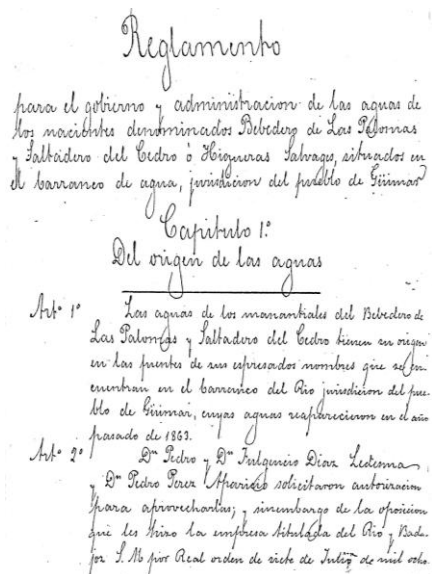 Reglamento
para el gobierno y administracion de las aguas de
los nacientes denominados Bebedero de Las Palomas
y Saltadero del Cedro ó Higueras Salvages, situados en
el barranco de agua, jurisdicion del pueblo de Güimar
Capitulo 1º
Del origen de las aguas
Artº 1º Las aguas de los manantiales del Bebedero de
Las Palomas y Saltadero del Cedro tienen su origen
en las fuentes de sus espresados nombres que se en
cuentran en el barranco del Rio jurisdicion del pue-
blo de Güimar, cuyas aguas reaparecieron en el año
pasado de 1863.
Artº 2º Dn Pedro y Dn Fulgencio Diaz Ledesma
y Dn Pedro Perez Aparicio solicitaron autorizacion
para aprovecharlas; y sinembargo de la oposicion
que les hizo la empresa titulada del Rio y Bada-
joz S. M por Real orden de siete de Julio de mil ocho